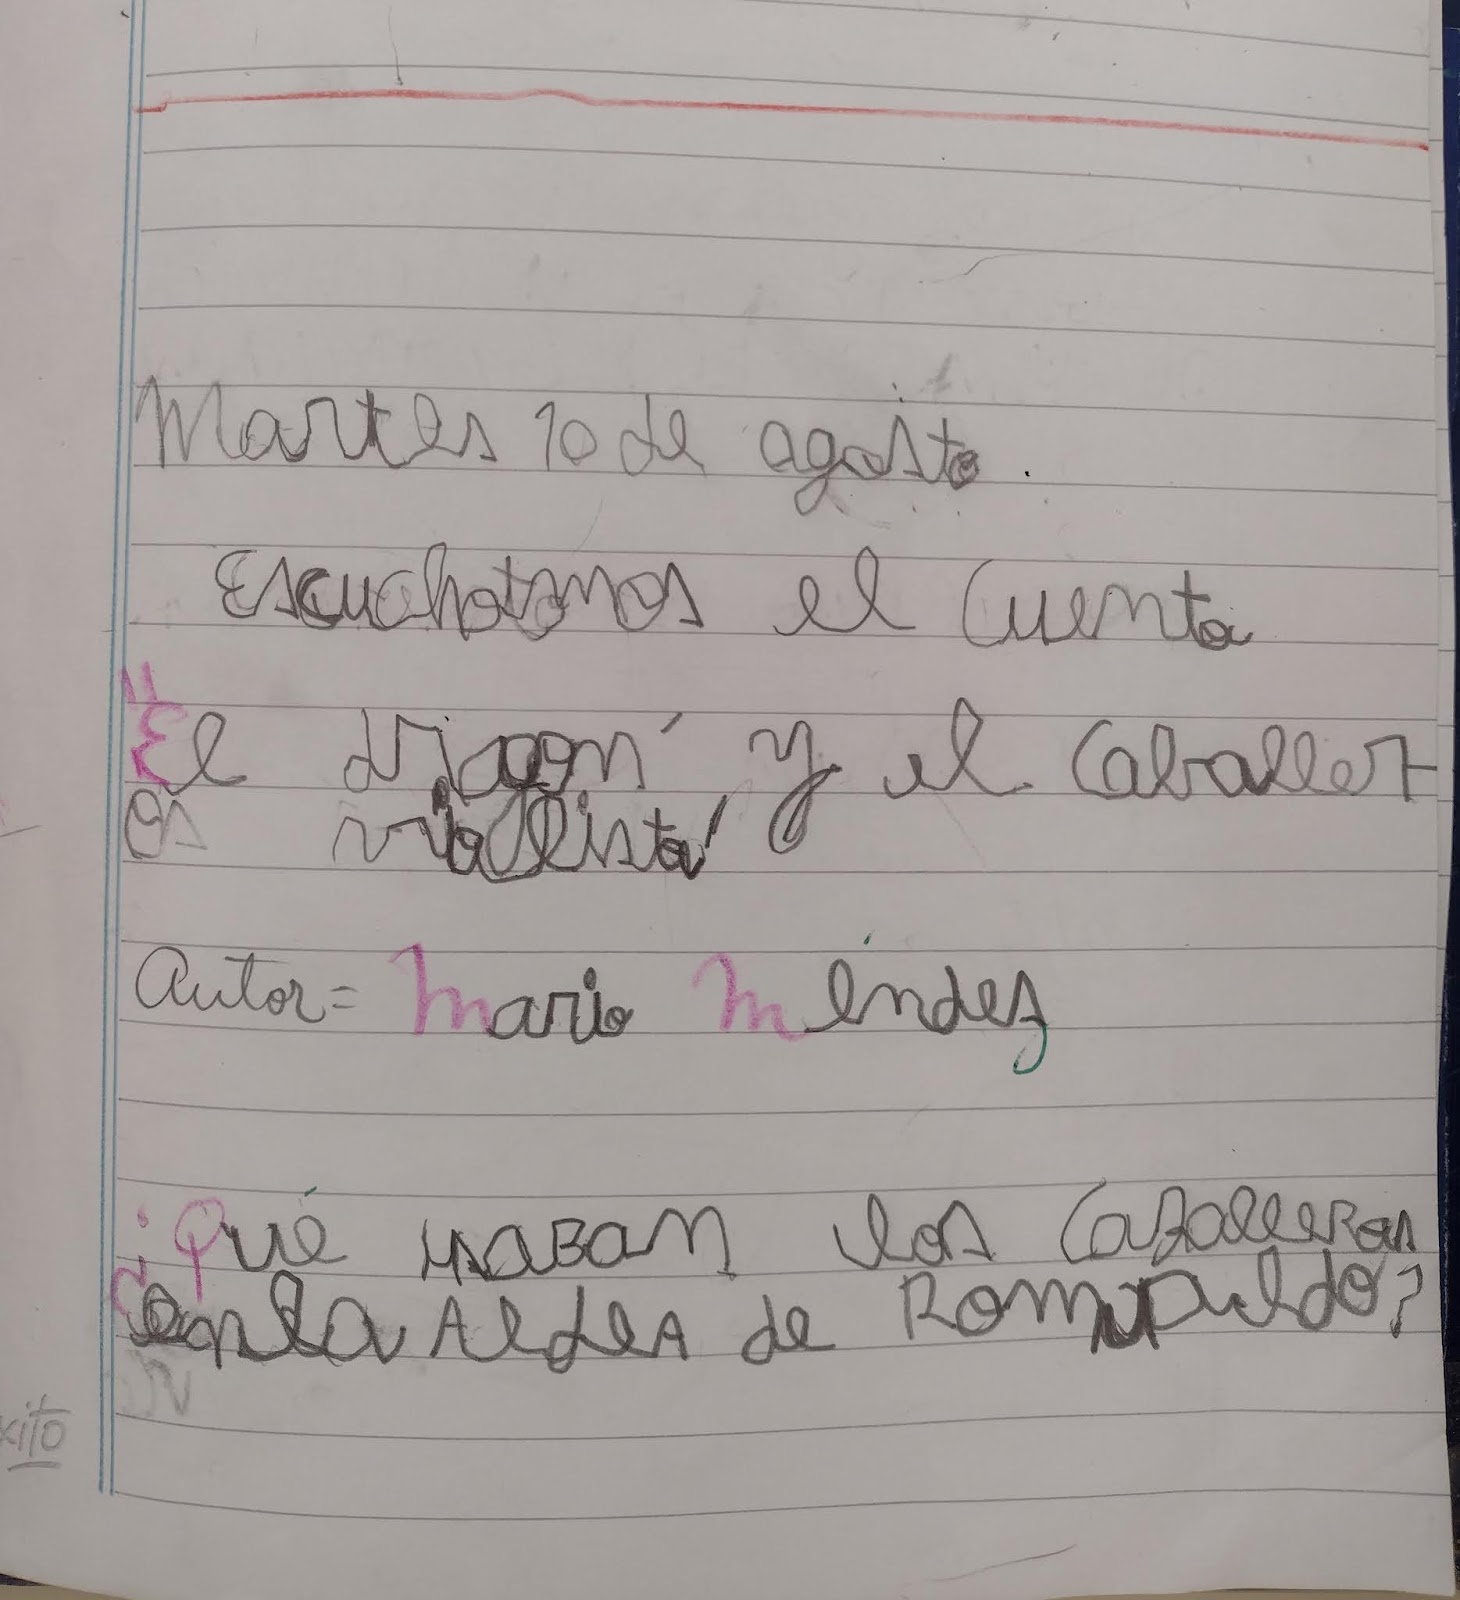 Martes 10 de agosto.
Escuchatamos el Cuento
"El dragón y el Caballer
os
Autor= Mario Méndez
¿Qué usaban los Caballeros
en la Aldea de Romualdo?
xito